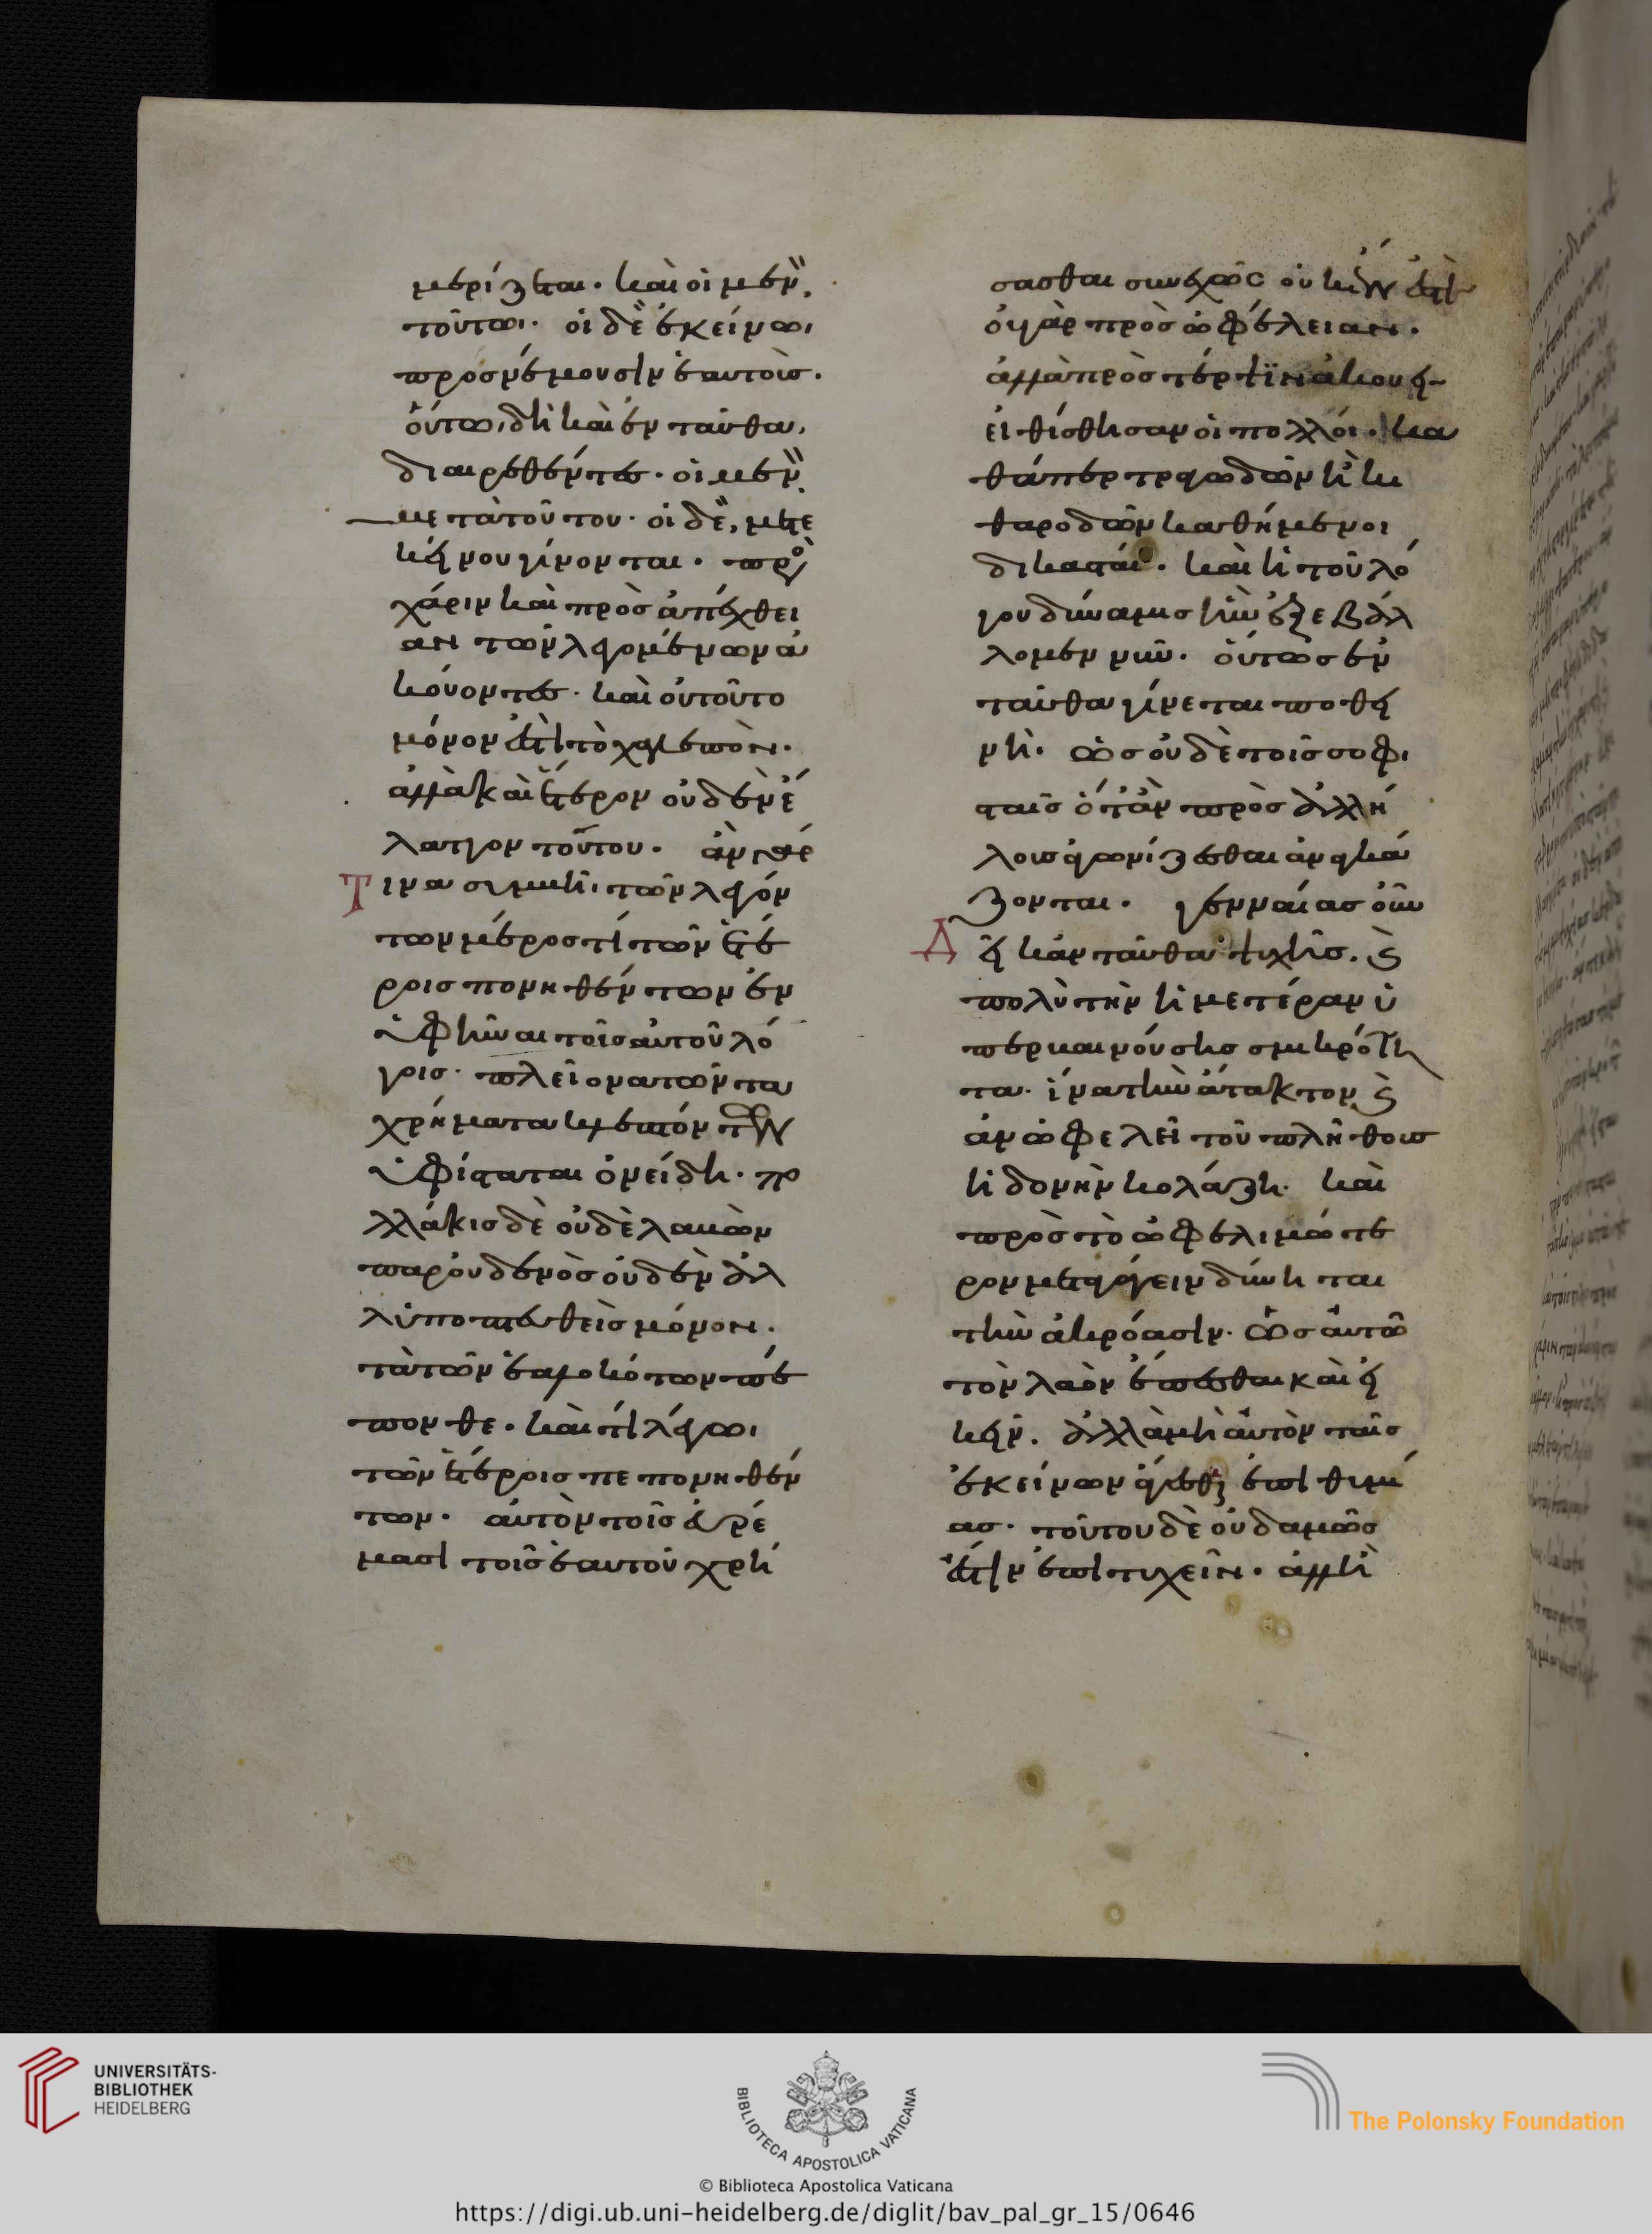 μερίζεται. καὶ οἱ μὲν
τούτωι. οἱ δὲ ἐκείνωι
προσνέμουσιν ἑαυτοὺς.
οὕτωι δὴ καὶ ἐνταῦθα,
διαιρεθέντες. οἱ μὲν
μετὰ τούτου. οἱ δὲ, μετ ε
κείνου γίνονται. πρὸς
χάριν καὶ πρὸς ἀπέχθει
αν τῶν λεγομένων ἀ
κούοντες. καὶ οὐ τοῦτο
μόνον ἐστὶ τὸ χαλεπὸν.
ἀλλὰ καὶ ἕτερον οὐδὲν ἔ
λαττον τούτου. ἂν γάρ
τινα συμβῆι τῶν λεγόν
των μέρος τὶ τῶν ἑτέ
ροις πονηθέντων ἐν
υφῆναι τοῖς αὐτοῦ λό
γοις. πλείονα τῶν τὰ
χρήματα κλεπτόντων
ὑφίσταται ὀνείδη. πο
λλάκις δὲ οὐδὲ λαβὼν
παρ οὐδενὸς οὐδὲν ἀλ
λ ὑποπτευθεὶς μόνον.
τὰ τῶν ἑαλωκότων πέ
πονθε. καὶ τί λέγωι
τῶν ἑτέροις πεπονηθέν
των. αὐτὸν τοῖς εὑρέ
μασι τοῖς ἑαυτοῦ χρή
σασθαι συνεχῶς οὐκ ἔνι ἐστὶ
οὐ γὰρ πρὸς ὠφέλειαν.
ἀλλὰ πρὸς τέρψιν ἀκούειν
εἰθίσθησαν οἱ πολλοί. κα
θάπερ τραγωδῶν ἢ κι
θαρωδῶν καθήμενοι
δικασταί. καὶ ἡ τοῦ λό
γου δύναμις ἣν ἐξεβάλ
λομεν νῦν. οὕτως ἐν
ταῦθα γίνεται ποθει
νὴ. ὡς οὐδὲ τοῖς σοφι
σταῖς ὅταν πρὸς ἀλλή
λους ἀγωνίζεσθαι ἀναγκά
ζονται. γενναίας οὖν
δεῖ κἀνταῦθα ψυχῆς. καὶ
πολὺ τὴν ἡμετέραν ὑ
περβαινούσης σμικρότη
τα. ἵνα τὴν ἄτακτον καὶ
ἀνωφελῆ τοῦ πλήθους
ἡδονὴν κολάζη. καὶ
πρὸς τὸ ὠφελιμώτε
ρον μεταγάγειν δύνηται
τὴν ἀκρόασιν. ὡς αὐτῶ
τὸν λαὸν ἕπεσθαι καὶ εἴ
κειν. ἀλλὰ μὴ αὐτὸν ταῖς
ἐκείνων ἄγεσθαι ἐπιθυμί
ας. τούτου δὲ οὐδαμῶς
ἔστιν ἐπιτυχεῖν. ἀλλ ἢ
UNIVERSITÄTS-
BIBLIOTHEK
HEIDELBERG
BIBLIOTECA APOSTOLICA VATICANA
The Polonsky Foundation
© Biblioteca Apostolica Vaticana
https://digi.ub.uni-heidelberg.de/diglit/bav_pal_gr_15/0646